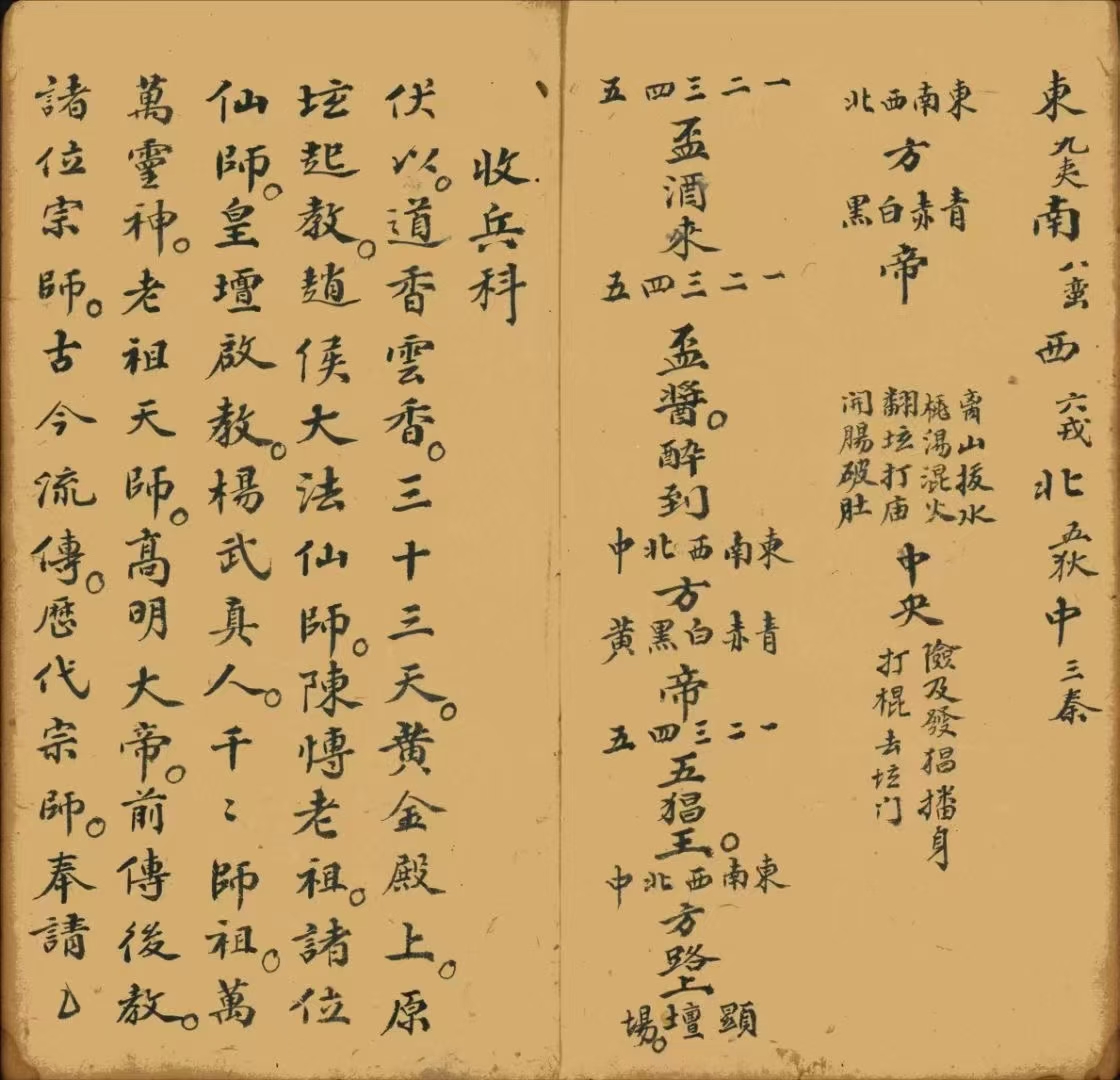 東九夷南八蛮西六戎北五狄中三秦
東南西北
方
青赤白黑
帝
离山拔水
桃湯混火
翻坛打庙
開腸破肚
中央
險及發猖播身
打棍去坛门
一二三四五
盃酒來
一二三四五
盃醬。酔到
東南西北中
方
青赤白黑黃
帝
一二三四五
五猖王。
東南西北中
方路上
顯壇場。
收兵科
伏以。道香雲香。三十三天。黄金殿上。原
坛起教。趙侯大法仙師。陳愽老祖。諸位
仙師。皇壇啟教。楊武真人。千〻師祖。萬
萬靈神。老祖天師。高明大帝。前傳後教。
諸位宗師。古今流傳。歷代宗師。奉請